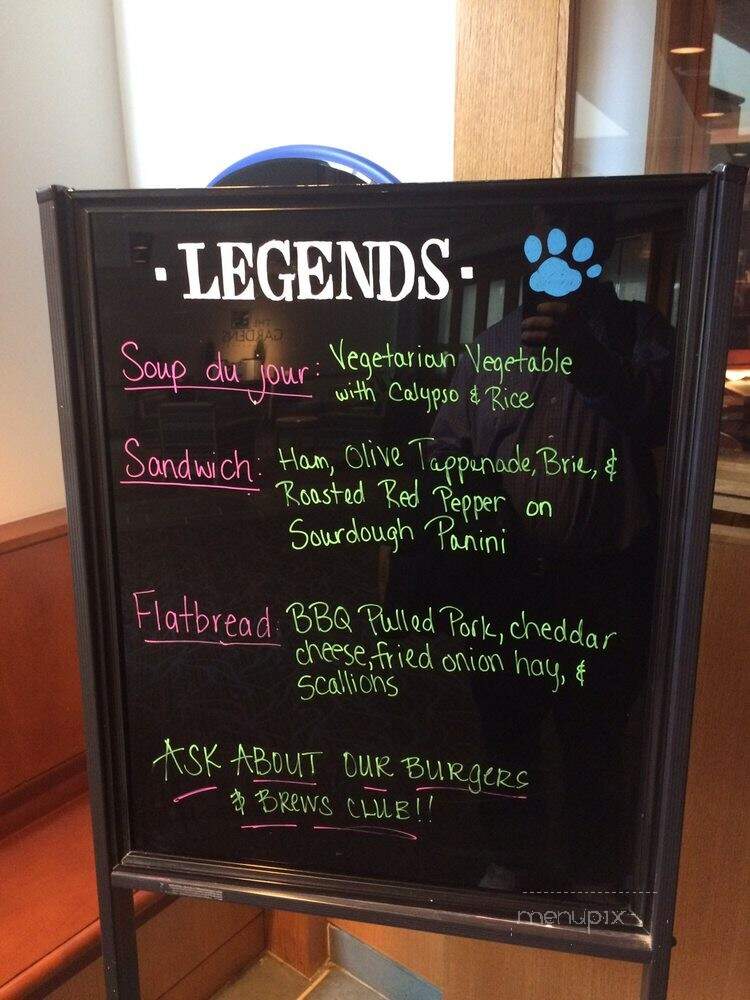 · LEGENDS ·
Soup du jour: Vegetarian Vegetable
with Calypso & Rice
Sandwich: Ham, Olive Tappanade, Brie, &
Roasted Red Pepper on
Sourdough Panini
Flatbread: BBQ Pulled Pork, cheddar
cheese, fried onion hay, &
Scallions
ASK ABOUT OUR BURGERS
& BREWS CLUB!!
menupix